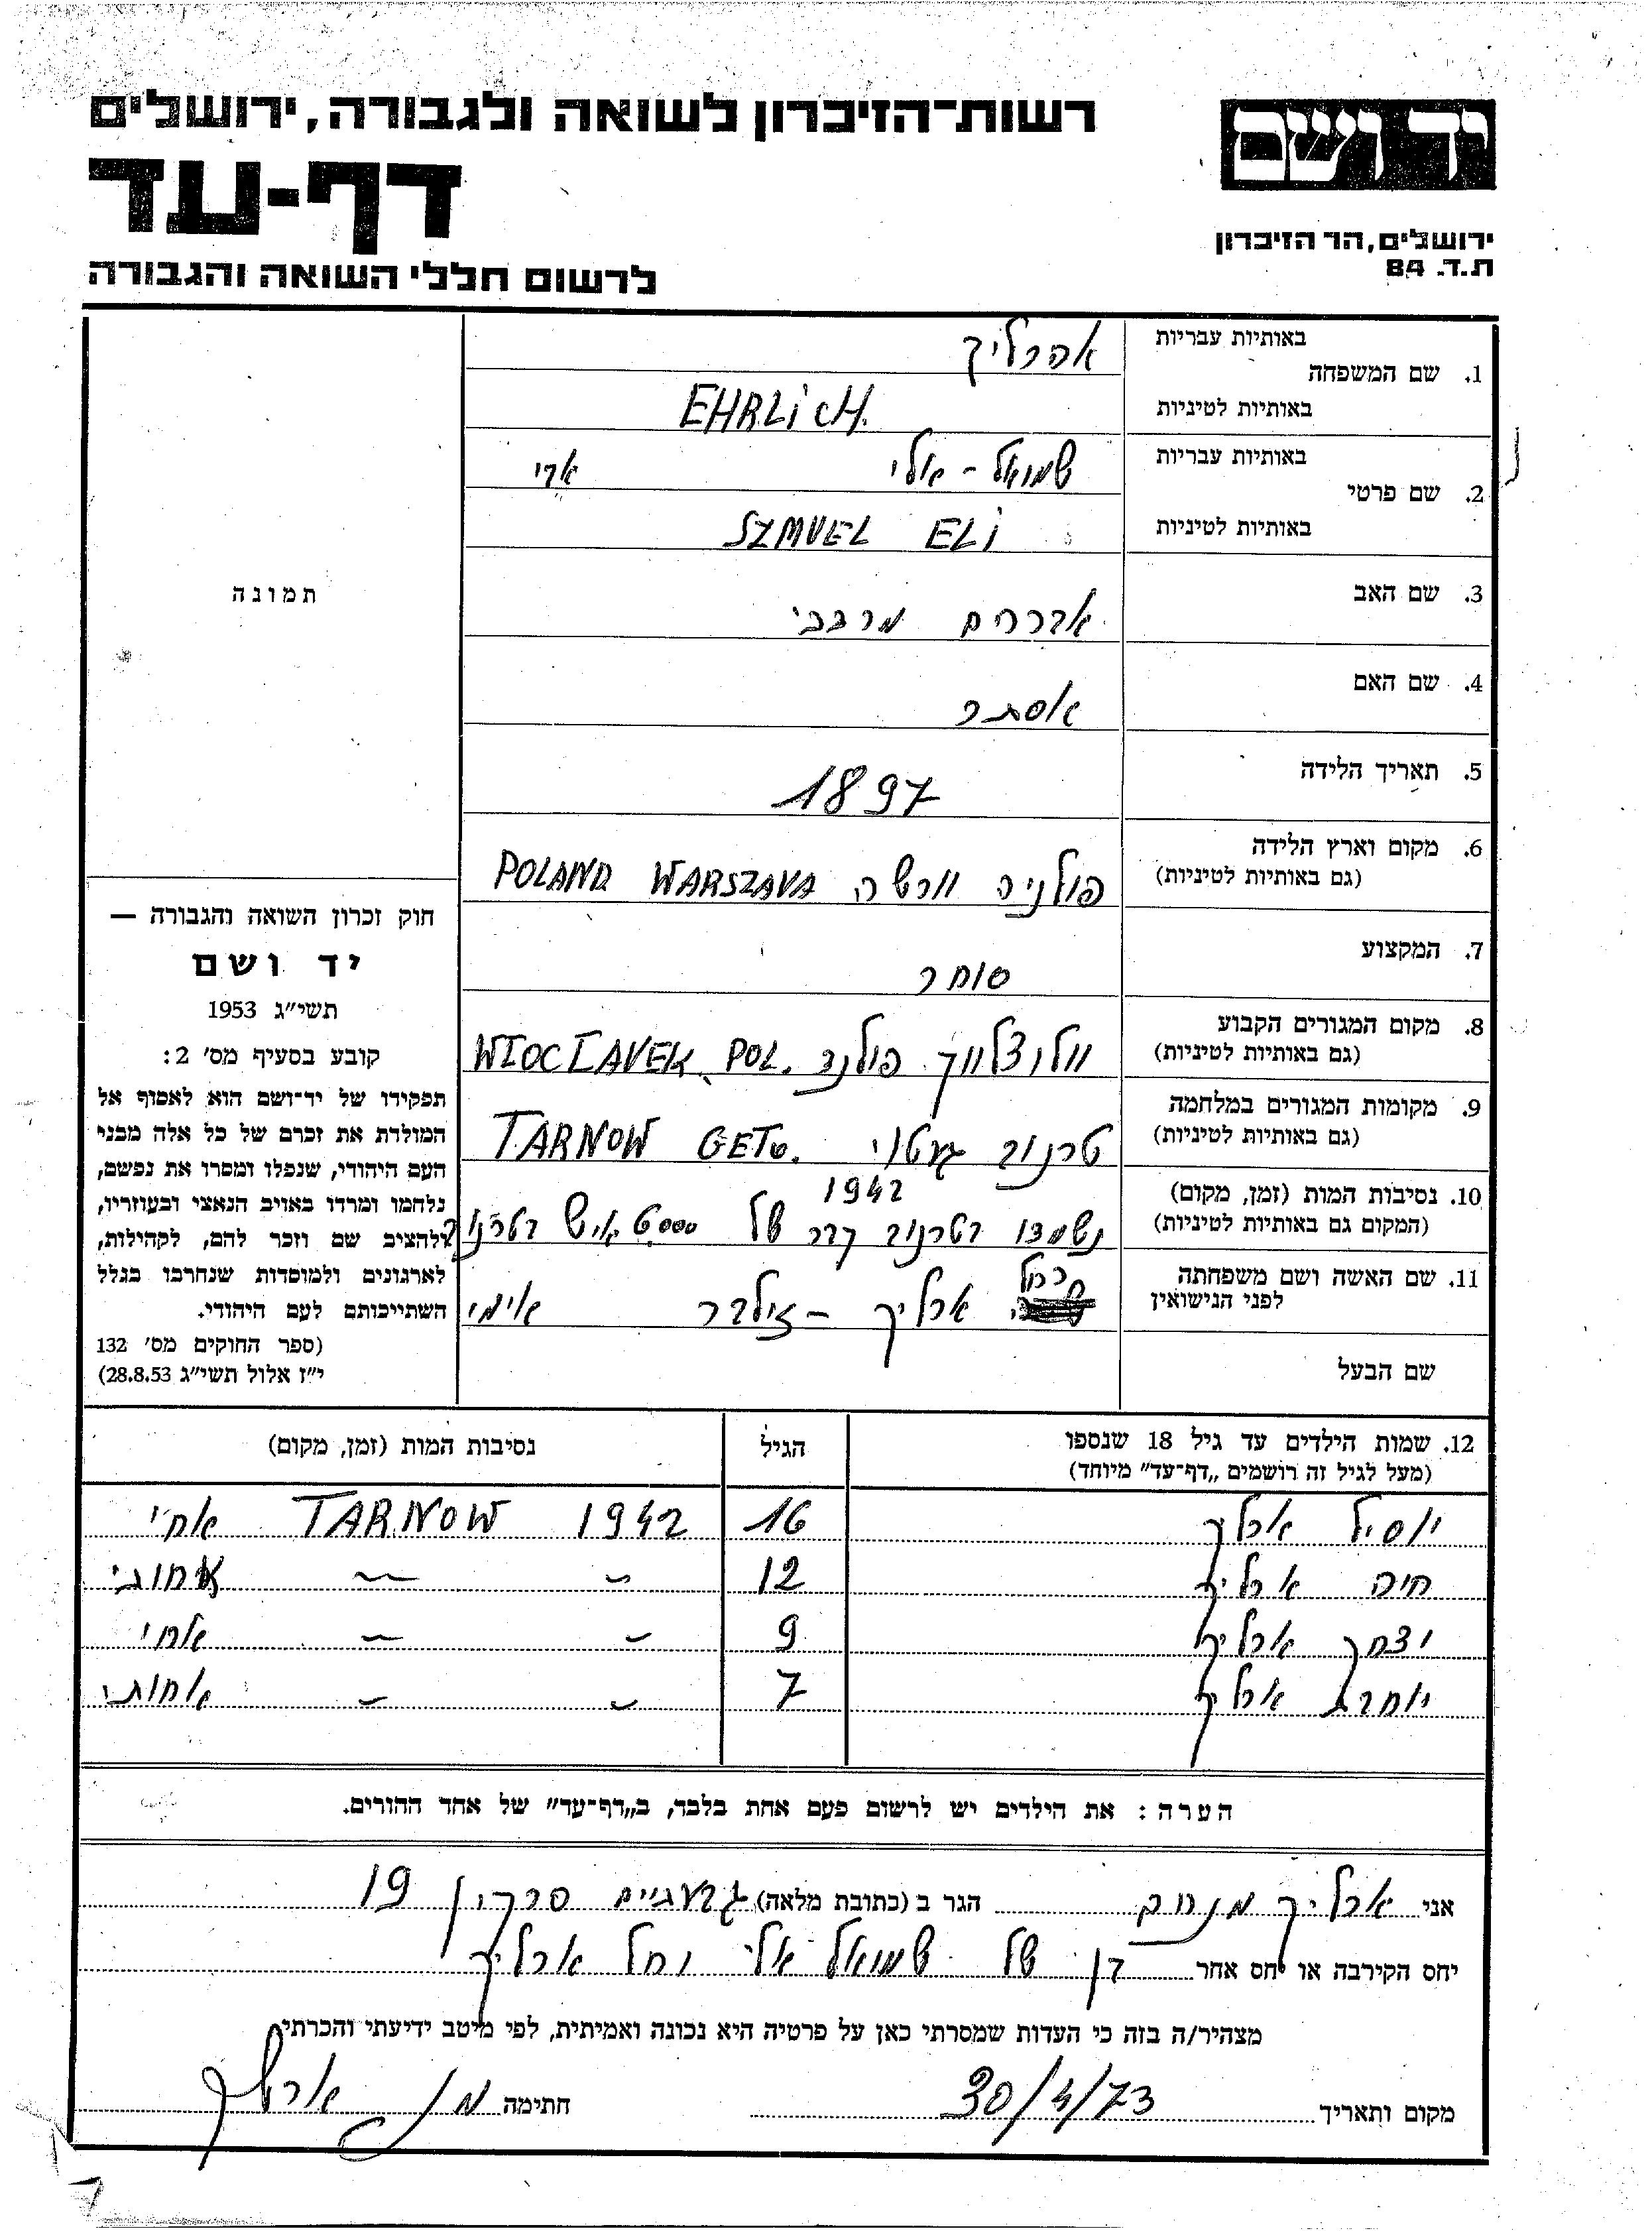 רשות־הזיכרון לשואה ולגבורה, ירושלים
יד ושם
דף-עד
ירושלים, הר הזיכרון
ת.ד. 84
לרשום חללי השואה והגבורה
באותיות עבריות
אהרליך
1. שם המשפחה
באותיות לטיניות
EHRLICH.
באותיות עבריות
שמואל - אלי אבי
2. שם פרטי
באותיות לטיניות
SZMUEL ELI
תמונה
3. שם האב
אברהם מרדכי
4. שם האם
אסתר
5. תאריך הלידה
1897
6. מקום וארץ הלידה
(גם באותיות לטיניות)
פולניה וורשה POLAND WARSZAVA
7. המקצוע
סוחר
8. מקום המגורים הקבוע
(גם באותיות לטיניות)
וולוצלווק פולנד WIOCLAVEK. POL.
9. מקומות המגורים במלחמה
(גם באותיות לטיניות)
טרנוב TARNOW GETO.
10. נסיבות המות (זמן, מקום)
(המקום גם באותיות לטיניות)
1942
נשמדו בטרנוב קבר של 6000 איש בטרנוב
11. שם האשה ושם משפחתה
לפני הנישואין
רחל
ארליך - זילבר אימי
שם הבעל
חוק זכרון השואה והגבורה —
יד ושם
תשי״ג 1953
קובע בסעיף מס׳ 2:
תפקידו של יד־ושם הוא לאסוף אל
המולדת את זכרם של כל אלה מבני
העם היהודי, שנפלו ומסרו את נפשם,
נלחמו ומרדו באויב הנאצי ובעוזריו,
ולהציב שם וזכר להם, לקהילות,
לארגונים ולמוסדות שנחרבו בגלל
השתייכותם לעם היהודי.
(ספר החוקים מס׳ 132
י״ז אלול תשי״ג 28.8.53)
12. שמות הילדים עד גיל 18 שנספו
(מעל לגיל זה רושמים „דף־עד״ מיוחד)
הגיל
נסיבות המות (זמן, מקום)
יוסיל ארליך 16 1942 TARNOW אחי
חיה ארליך 12 - - אחותי
יצחק ארליך 9 - - אחי
יוחבת ארליך 7 - - אחותי
הערה: את הילדים יש לרשום פעם אחת בלבד, ב„דף־עד״ של אחד ההורים.
אני ארליך מנחם הגר ב (כתובת מלאה) גבעתיים סרקין 19
יחס הקירבה או יחס אחר בן של שמואל אלי ורחל ארליך
מצהיר/ה בזה כי העדות שמסרתי כאן על פרטיה היא נכונה ואמיתית, לפי מיטב ידיעתי והכרתי
מקום ותאריך 30/4/73 חתימה מנ ארליך